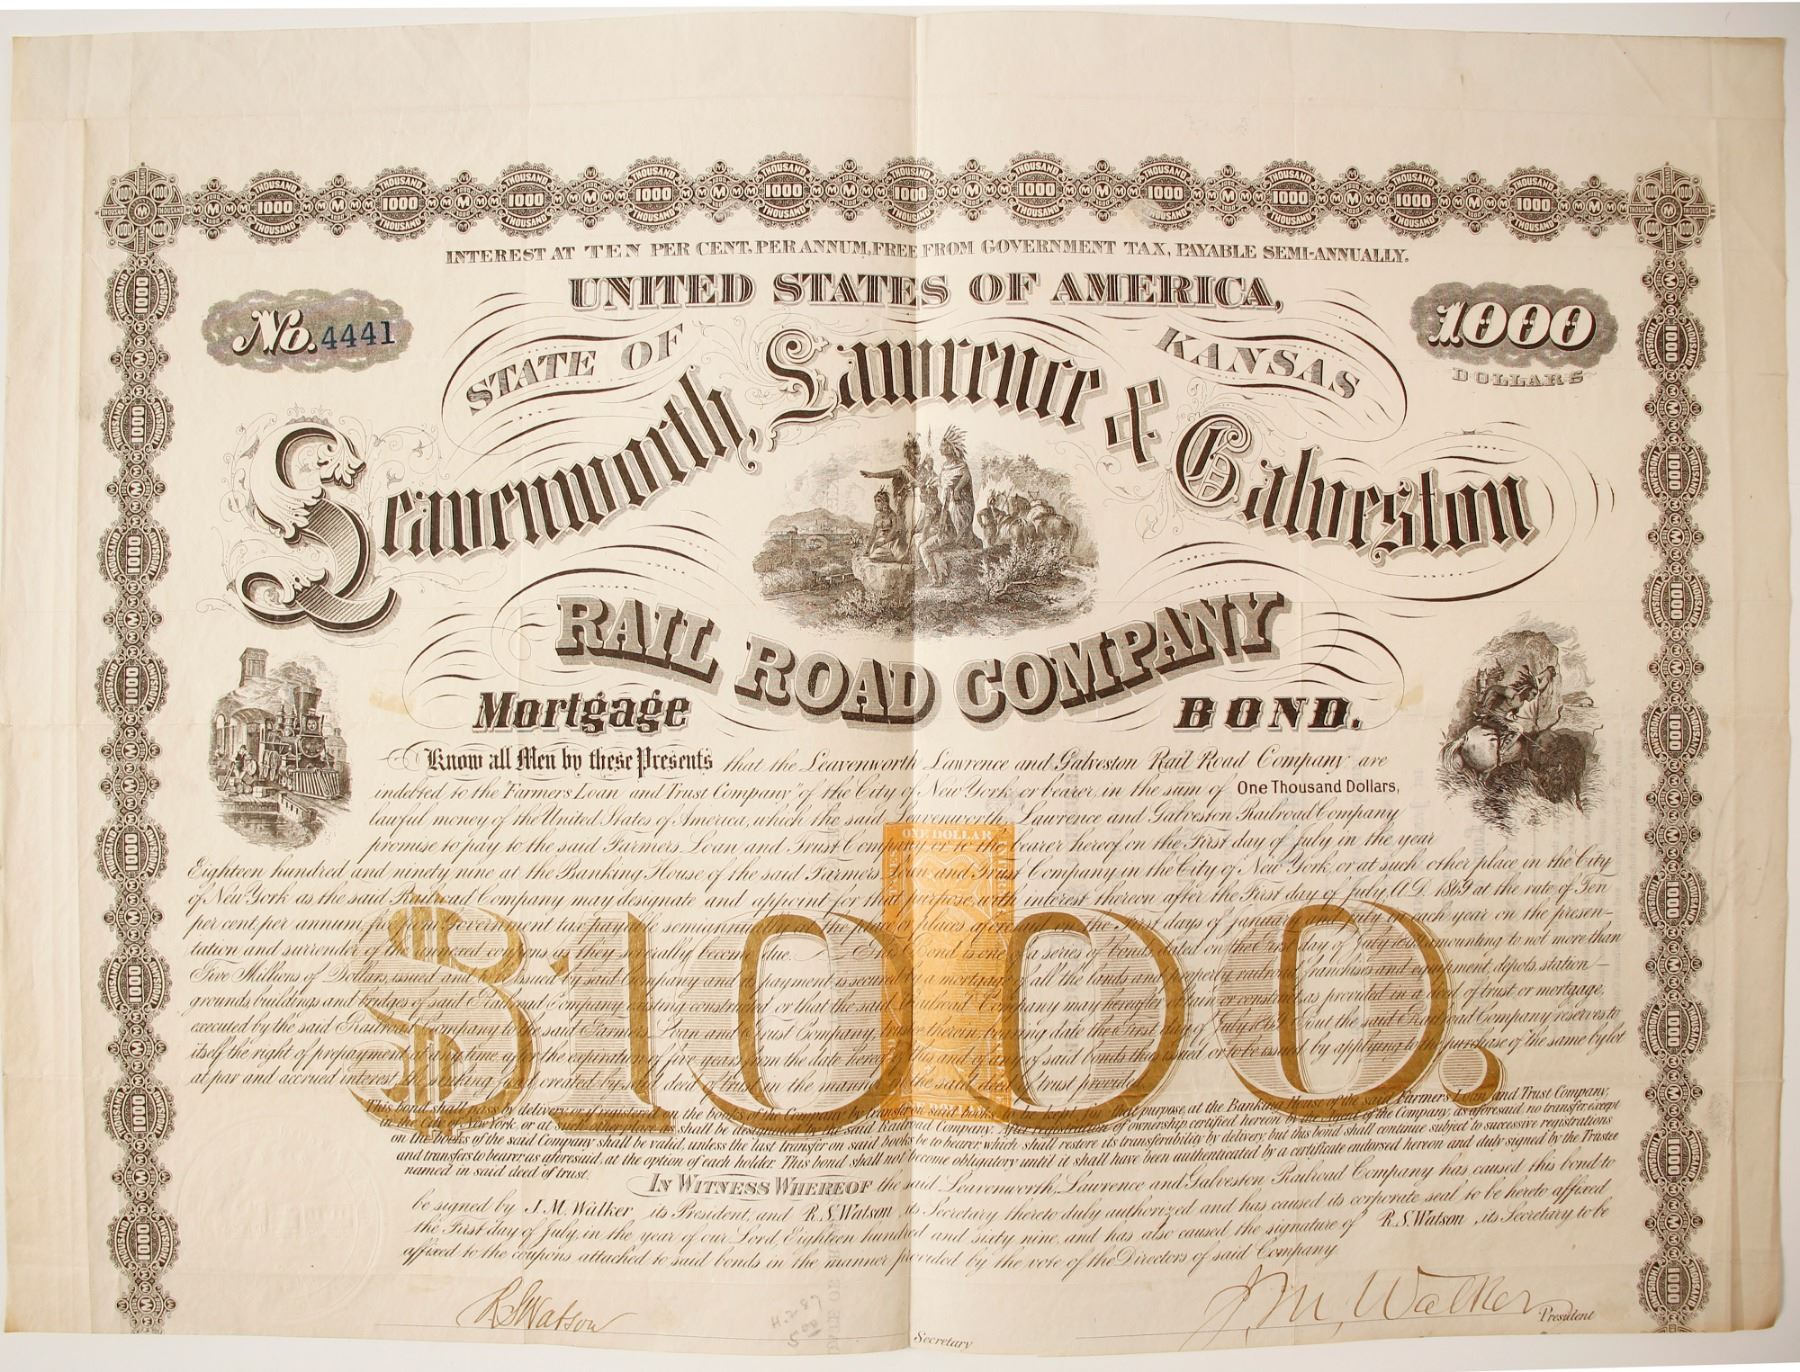 INTEREST AT TEN PER CENT, PER ANNUM, FREE FROM GOVERNMENT TAX, PAYABLE SEMI-ANNUALLY.
UNITED STATES OF AMERICA,
No. 4441
1000
DOLLARS
STATE OF KANSAS
Leavenworth, Lawrence & Galveston
RAIL ROAD COMPANY
Mortgage BOND.
Know all Men by these Presents that the Leavenworth Lawrence and Galveston Rail Road Company are
indebted to the "Farmers Loan and Trust Company" of the City of New York or bearer, in the sum of One Thousand Dollars,
lawful money of the United States of America, which the said Leavenworth, Lawrence and Galveston Railroad Company
promise to pay to the said Farmers Loan and Trust Company or to the bearer hereof on the First day of July in the year
Eighteen hundred and ninety nine at the Banking House of the said Farmers Loan and Trust Company in the City of New York, or at such other place in the City
of New York as the said Railroad Company may designate and appoint for that purpose, with interest thereon after the First day of July, A.D. 1869 at the rate of Ten
per cent, per annum, free from Government tax payable semiannually at the place or places aforesaid on the First days of January and July in each year on the presen-
tation and surrender of the annexed coupons as they serially become due. This Bond is one of a series of bonds dated on the First day of July amounting to not more than
Five Millions of Dollars, issued and to be issued by said Company and its payment is secured by a mortgage of all the lands and property railroad, franchises and equipment, depots, station-
grounds, buildings and bridges of said Railroad Company existing constructed or that the said Railroad Company may hereafter obtain or construct, as provided in a deed of trust or mortgage,
executed by the said Railroad Company to the said Farmers Loan and Trust Company, trustee therein, bearing date the First day of July 1869 But the said Railroad Company reserves to
itself the right of prepayment at any time after the expiration of five years from the date hereof of this and of any of said bonds then issued or to be issued by applying to the purchase of the same by lot
at par and accrued interest, the sinking fund created by said deed of trust in the manner in the said deed of trust provided.
This bond shall pass by delivery or if registered on the books of the Company by transfer on said books to be kept for that purpose, at the Banking House of the said Farmers Loan and Trust Company,
in the City of New York, or at such other place as shall be designated by the said Railroad Company. After registration of ownership certified hereon by the Agent of the Company, as aforesaid no transfer except
on the books of the said Company shall be valid, unless the last transfer on said books be to bearer which shall restore its transferability by delivery, but this bond shall continue subject to successive registrations
and transfers to bearer as aforesaid, at the option of each holder. This bond shall not become obligatory until it shall have been authenticated by a certificate endorsed hereon and duly signed by the Trustee
named in said deed of trust.
IN WITNESS WHEREOF the said Leavenworth, Lawrence and Galveston Railroad Company has caused this bond to
be signed by J. M. Walker its President, and R.S. Watson its Secretary thereto duly authorized and has caused its corporate seal to be hereto affixed
the First day of July, in the year of our Lord, Eighteen hundred and sixty nine, and has also caused the signature of R.S. Watson, its Secretary, to be
affixed to the coupons attached to said bonds in the manner provided by the vote of the Directors of said Company
$1000.
ONE DOLLAR
RS Watson
Secretary
J. M. Walker
President